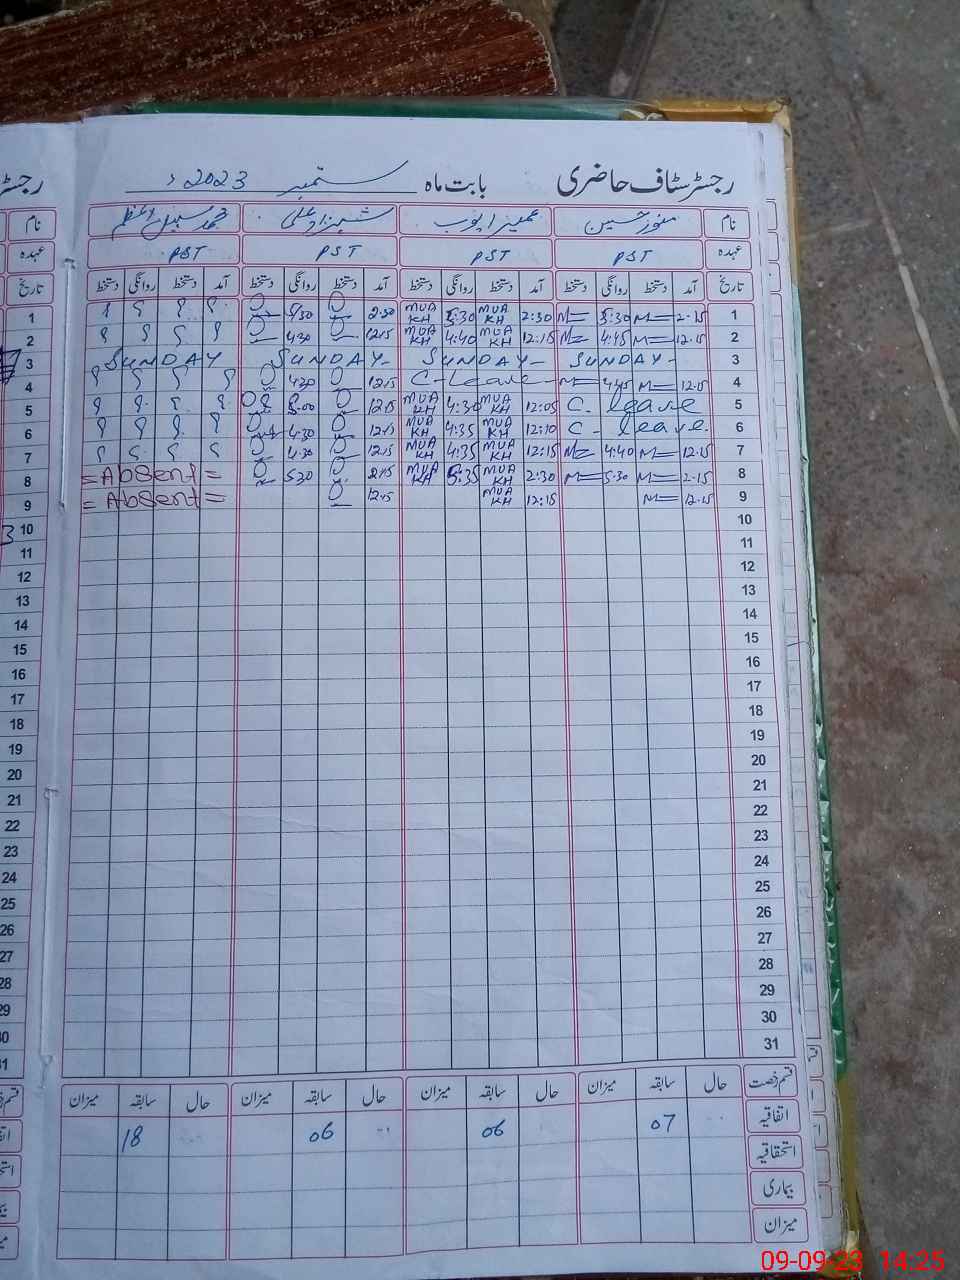 رجسٹر سٹاف حاضری بابت ماہ ستمبر 2023ء
نام منور حسین عمیر ایوب شہزاد علی محمد سہیل اعظم نام
عہدہ PST PST PST PST عہدہ
تاریخ آمد دستخط روانگی دستخط آمد دستخط روانگی دستخط آمد دستخط روانگی دستخط آمد دستخط روانگی دستخط تاریخ
1 2:15 M 5:30 M 2:30 MUA KH 5:30 MUA KH 2:30 1
2 12:15 M 4:45 M 12:15 MUA KH 4:40 MUA KH 12:15 4:30 2
3 SUNDAY SUNDAY SUNDAY SUNDAY 3
4 12:15 M 4:45 M C-Leave 12:15 4:30 4
5 C. leave 12:05 MUA KH 4:30 MUA KH 12:15 5:00 5
6 C. leave. 12:10 MUA KH 4:35 MUA KH 12:15 4:30 6
7 12:15 M 4:40 M 12:15 MUA KH 4:35 MUA KH 12:15 4:30 7
8 2:15 M 5:30 M 2:30 MUA KH 5:35 MUA KH 2:15 5:30 =Absent= 8
9 12:15 M 12:15 MUA KH 12:15 =Absent= 9
10 10
11 11
12 12
13 13
14 14
15 15
16 16
17 17
18 18
19 19
20 20
21 21
22 22
23 23
24 24
25 25
26 26
27 27
28 28
29 29
30 30
31 31
قسم رخصت حال سابقہ میزان حال سابقہ میزان حال سابقہ میزان حال سابقہ میزان
اتفاقیہ 07 06 06 18
استحقاقیہ
بیماری
میزان
09-09-23 14:25